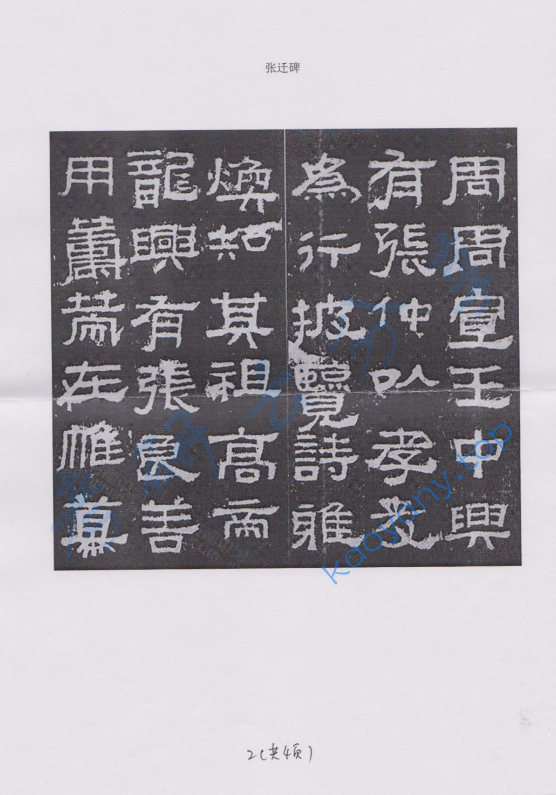 张迁碑
周周宣王中興
有張仲以孝友
為行披覽詩雅
煥知其祖高帝
龍興有張良善
用籌策在帷幕
kaoyany.top
2(共4页)